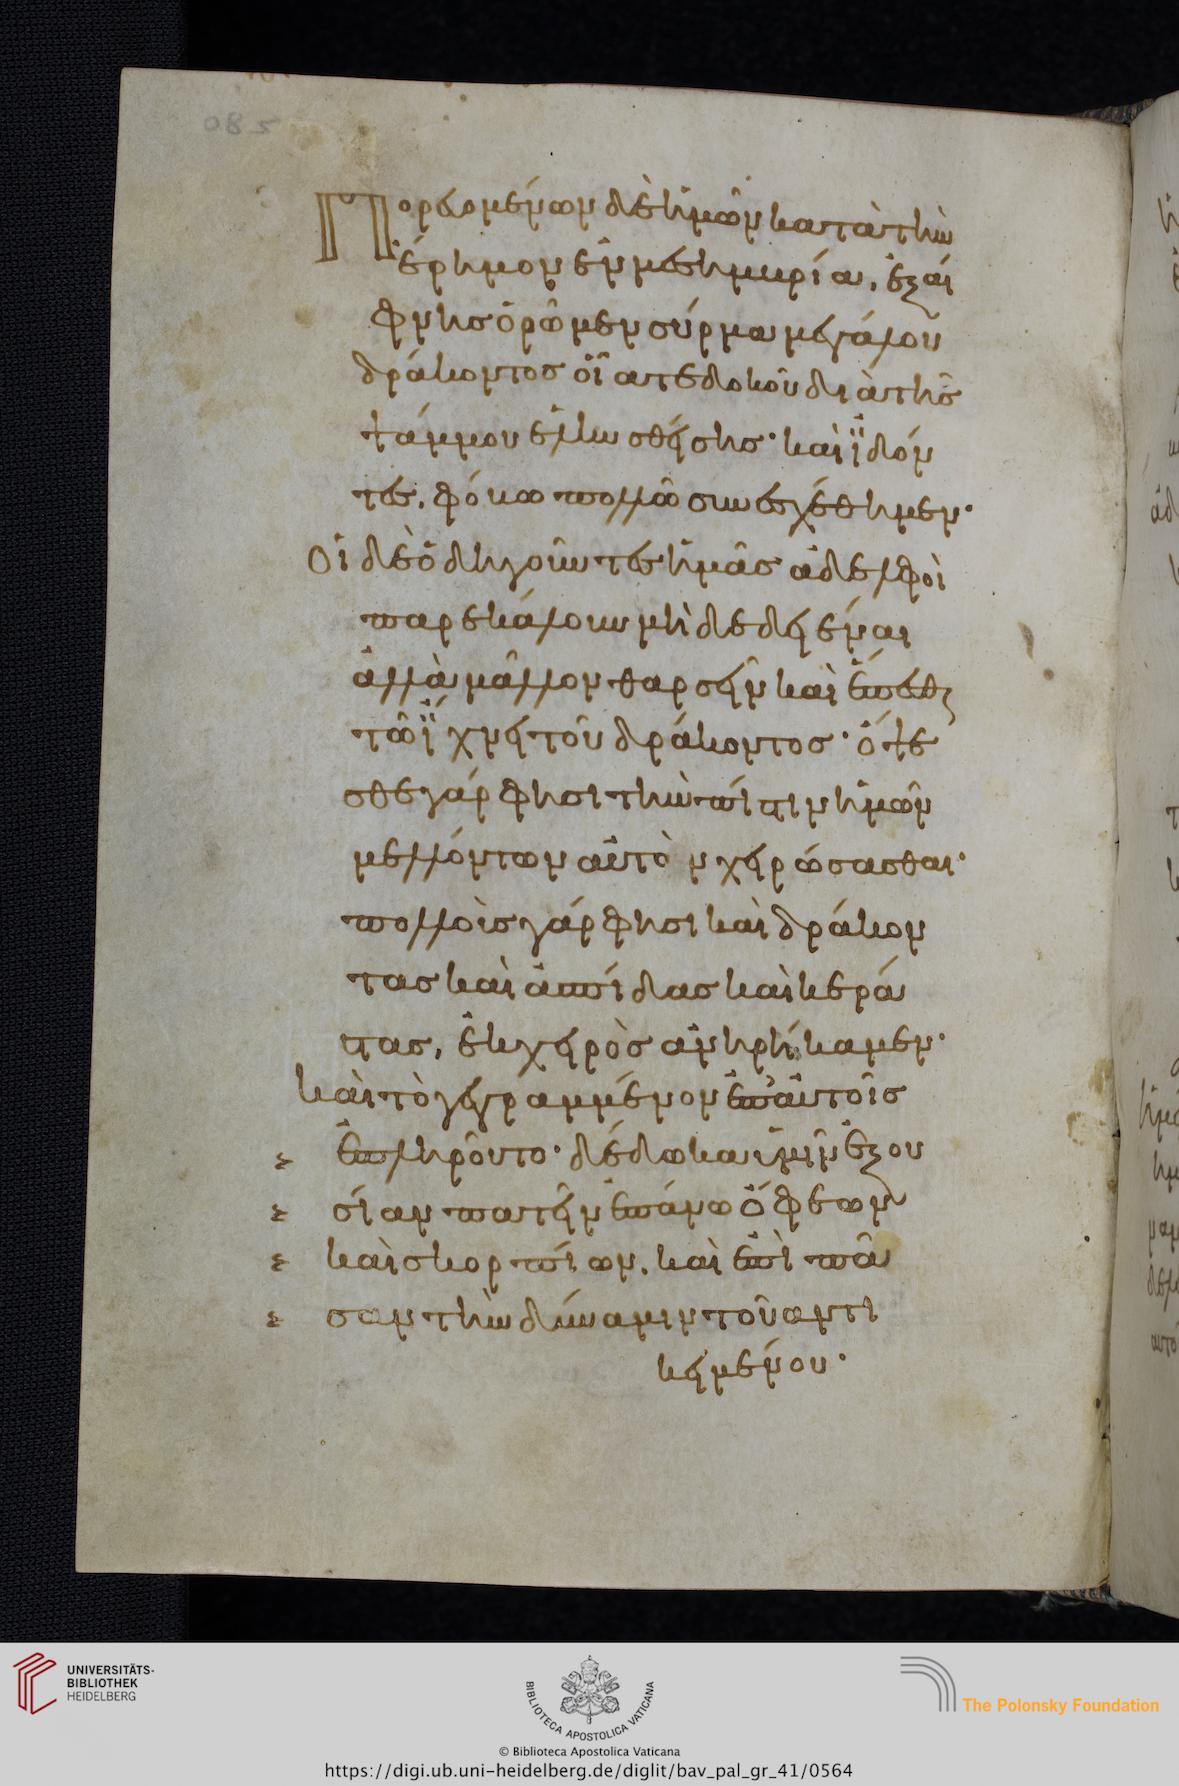 085
Πορευομένων δὲ ἡμῶν κατὰ τὴν
ἔρημον ἐν μεσημβρία, ἐξαί
φνης ὁρῶμεν σύρμα μεγάλου
δράκοντος οἷα τε δοκοῦ διὰ τῆς
ψάμμου ἑλκυσθείσης· καὶ ϊδόν
τες, φόβω πολλῶ συνεσχέθημεν·
Οἱ δὲ ὁδηγοῦντες ἡμᾶς ἀδελφοὶ
παρεκάλουν μὴ δεδειέναι
ἀλλὰ μᾶλλον θαρσεῖν καὶ ἕπεσθαι
τῶ ϊχνει τοῦ δράκοντος· ὄψε
σθε γάρ φησι τὴν πίστιν ἡμῶν
μελλόντων αὐτὸν χειρώσασθαι·
πολλοὶς γάρ φησι καὶ δράκον
τας καὶ ἀσπίδας καὶ κερά
στας, ἐκ χειρὸς ἀνηρήκαμεν·
Καὶ τὸ γεγραμμένον ἐπ' αὐτοῖς
ἐπληροῦντο· δέδωκα ὑμῖν ἐξου
σίαν πατεῖν ἐπάνω ὄφεων
καὶ σκορπίων. καὶ ἐπὶ πᾶ
σαν τὴν δύναμιν τοῦ αντι
κειμένου·
UNIVERSITÄTS-
BIBLIOTHEK
HEIDELBERG
BIBLIOTECA APOSTOLICA VATICANA
The Polonsky Foundation
© Biblioteca Apostolica Vaticana
https://digi.ub.uni-heidelberg.de/diglit/bav_pal_gr_41/0564